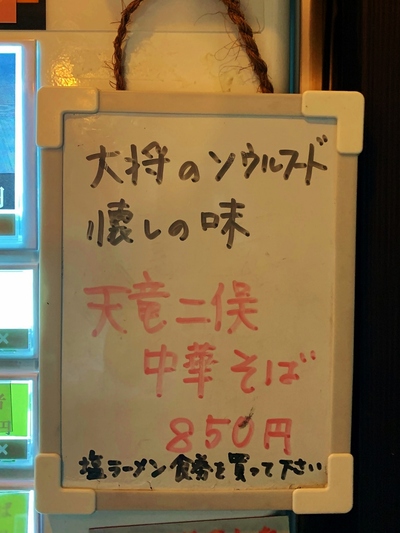 大将のソウルフード
懐しの味
天竜二俣
中華そば
850円
塩ラーメン食券を買って下さい